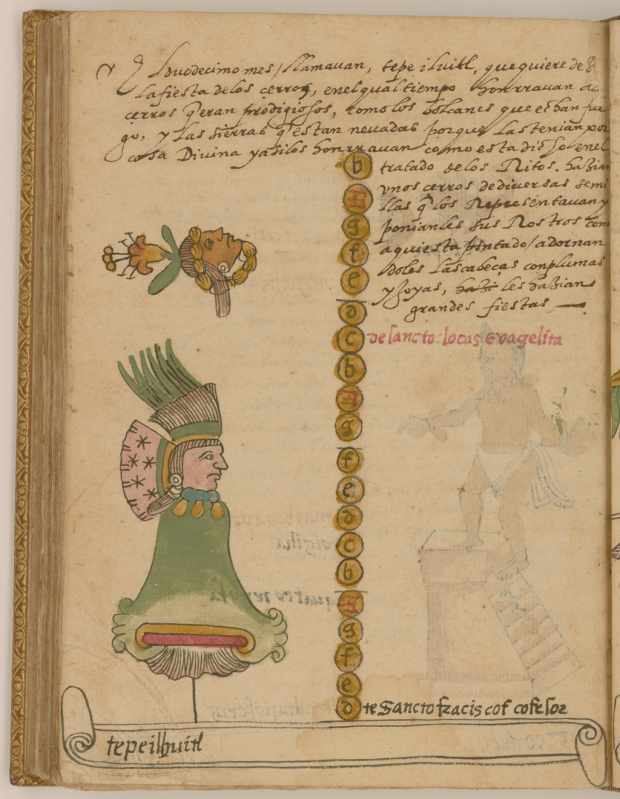 El duodecimo mes, llamauan, tepeiluitl, que quiere dezir
la fiesta delos cerros, enel qual tiempo honrrauan los
cerros q eran prodigiosos, como los bolcanes que echan fue
go, y las sierras q estan neuadas porque las tenian por
cosa Diuina y asi los honrrauan como esta dicho enel
tratado delos Ritos. hazian
vnos cerros dediuersas semi
llas q los Representauan y
ponianles sus Rostros como
aqui esta pintado / adornan
doles las cabeças con plumas
y joyas, les hazian
grandes fiestas
b
A
g
f
e
d
c
de sancto: locas evagelita
b
A
g
f
e
d
c
b
A
g
f
e
d te Sancto fracis cof cofesor
tepeilhuitl